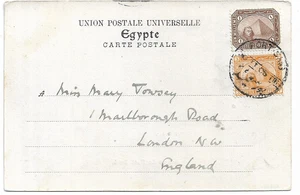 UNION POSTALE UNIVERSELLE
Egypte
CARTE POSTALE
PORT
Miss Mary Towsey
1 Marlborough Road
London N.W
England